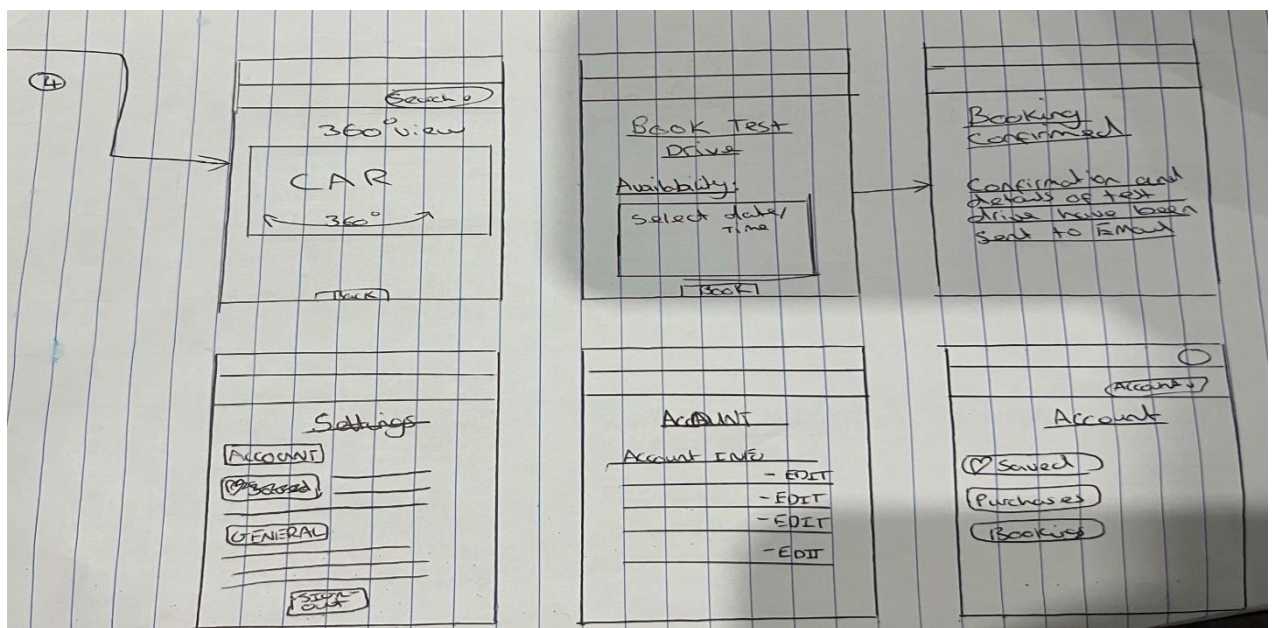 4
Search
360° view
CAR
360°
Back
Book Test
Drive
Availability:
Select date/
Time
BOOK
Booking
Confirmed
Confirmation and
details of test
drive have been
sent to Email
Settings
ACCOUNT
GENERAL
SIGN
OUT
ACCOUNT
Account INFO
- EDIT
- EDIT
- EDIT
- EDIT
Account
Account
Saved
Purchases
Bookings